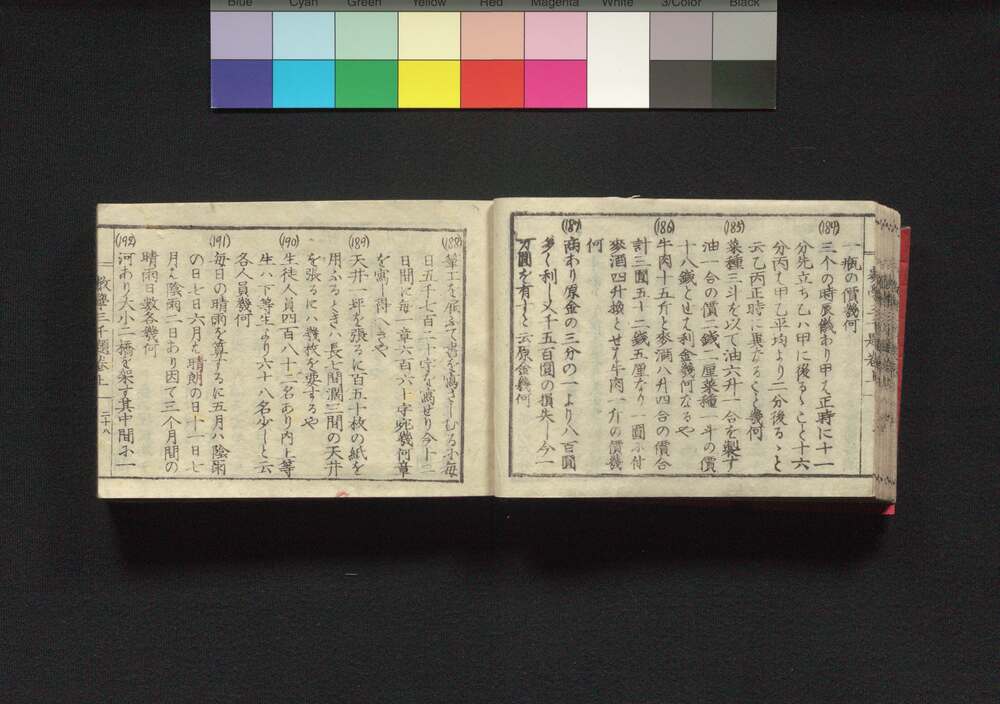 Blue Cyan Green Yellow Red Magenta White 3/Color Black
一瓶の價幾何
(184)
三个の時辰儀あり甲ハ正時に十一
分先立ち乙ハ甲に後るゝこと十六
分丙ハ甲乙平均より二分後るゝと
云乙丙正時に異なること幾何
(185)
菜種三斗を以て油六升一合を製す
油一合の價二錢二厘菜種一斗の價
十八錢とせバ利金幾何なるや
(186)
牛肉十五斤と麥酒八升四合の價合
計三圓五十二錢五厘なり一圓に付
麥酒四升換とせバ牛肉一斤の價幾
何
(187)
商あり原金の三分の一より八百圓
多く利し又千五百圓の損失し今一
万圓を有すと云原金幾何
(188)
筆工を雇ふて書を寫さしむるに毎
日五千七百二十字を寫せり今十二
日間に毎一章六百六十字 幾何章
を寫し得へきや
(189)
天井一坪を張るに百五十枚の紙を
用ふるときハ長七間濶三間の天井
を張るにハ幾枚を要するや
(190)
生徒人員四百八十二名あり内上等
生ハ下等生より六十八名少しと云
各人員幾何
(191)
毎日の晴雨を算するに五月ハ陰雨
の日七日六月ハ晴朗の日十一日七
月ハ陰雨二日あり因て三个月間の
晴雨日數各幾何
(192)
河あり大小二橋を架す其中間に一
數學三千題卷上
二十八